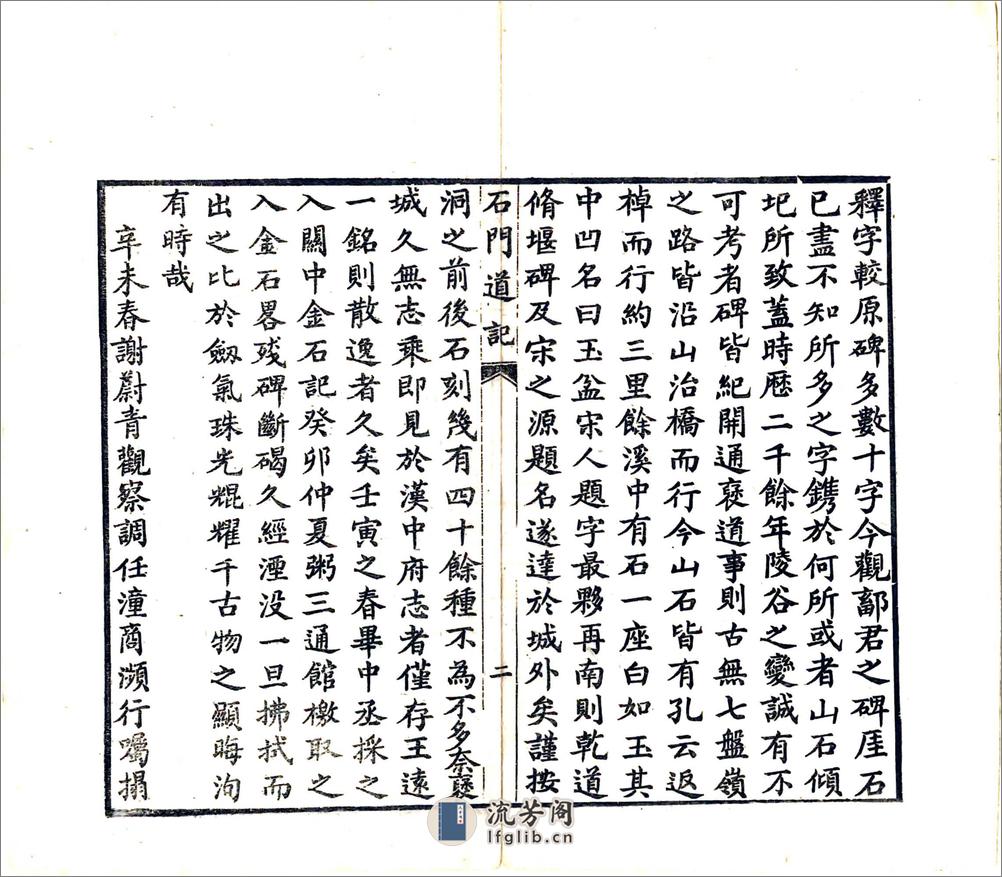 釋字較原碑多數十字今觀鄐君之碑厓石
已盡不知所多之字鐫於何所或者山石傾
圮所致蓋時歴二千餘年陵谷之變誠有不
可考者碑皆紀開通褒道事則古無七盤嶺
之路皆沿山治橋而行今山石皆有孔云返
棹而行約三里餘溪中有石一座白如玉其
中凹名曰玉盆宋人題字最夥再南則乾道
脩堰碑及宋之源題名遂達於城外矣謹按
石門道記
二
洞之前後石刻幾有四十餘種不為不多奈褒
城久無志乘即見於漢中府志者僅存王遠
一銘則散逸者久矣壬寅之春畢中丞採之
入關中金石記癸卯仲夏粥三通館檄取之
入金石畧殘碑斷碣久經湮没一旦拂拭而
出之比於劔氣珠光焜耀千古物之顯晦洵
有時哉
辛未春謝蔚青觀察調任潼商瀕行囑搨
流芳阁
lfglib.cn